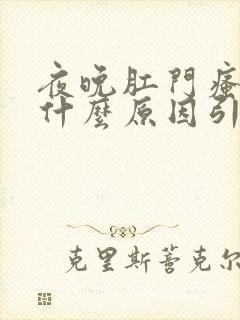 夜晚肛門瘙
什麼原因引
克里斯蒂克尔